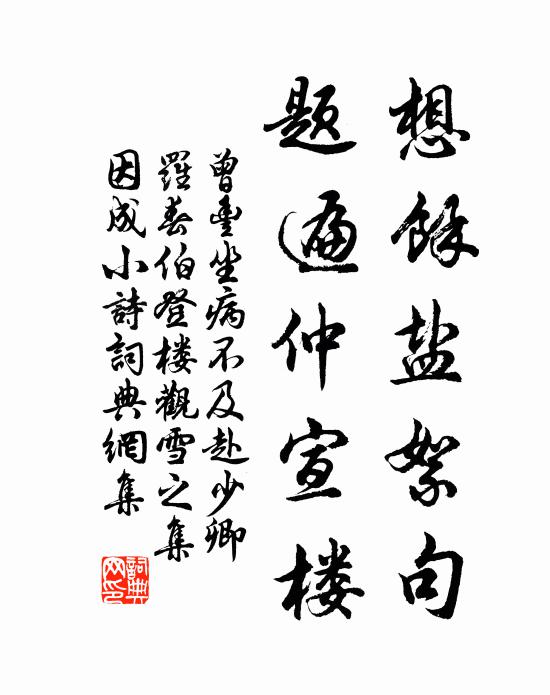 想餘盐絮句
题遍仲宣楼
曾豊坐病不及赴少卿
羅春伯登楼觀雪之集
因成小詩詞典網集
詞典网印